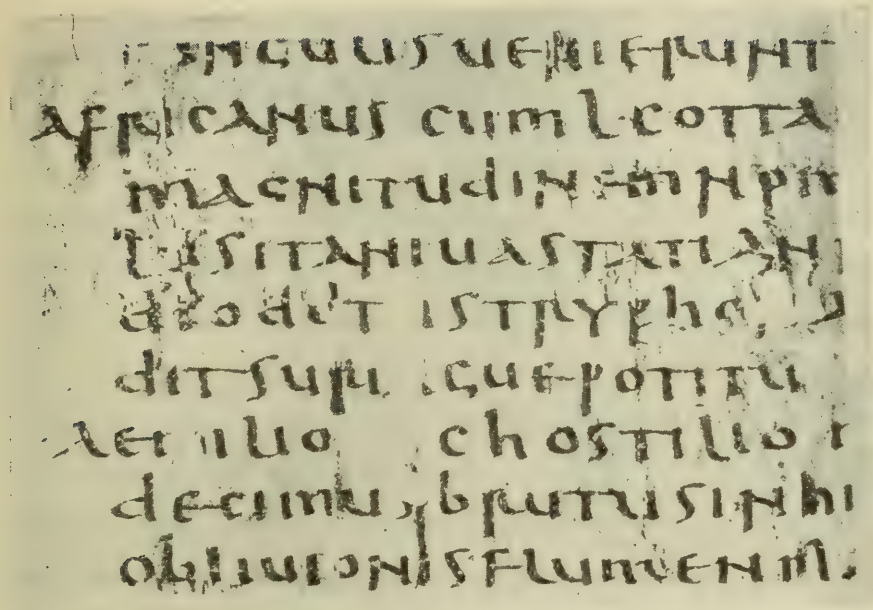 singulus uenierunt
africanus cum l cotta
magnitudinem n
lusitani uastati an
deodotis trypho
dit suri que potitu
aemilio c hostilio
decimus brutus in hi
obliuionis flumen